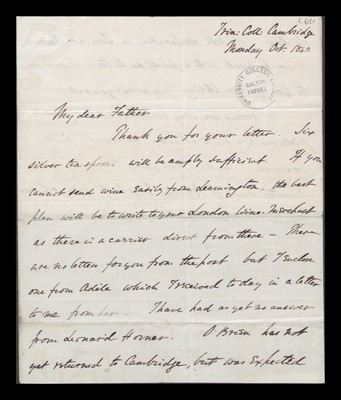 Trin: Coll: Cambridge
Monday Oct. 1840.
UNIVERSITY COLLEGE
GALTON
PAPERS
My dear Father
Thank you for your letter. Six
silver tea spoons will be amply sufficient If you
cannot send wine easily from Leamington, the best
plan will be to write to your London Wine-Merchant
as there is a carrier direct from there - There
are no letters for you from the post but I enclose
one from Adèle which I received to day in a letter
to me from her. I have had as yet no answer
from Leonard Horner. O'Brien has not
yet returned to Cambridge, but was expected